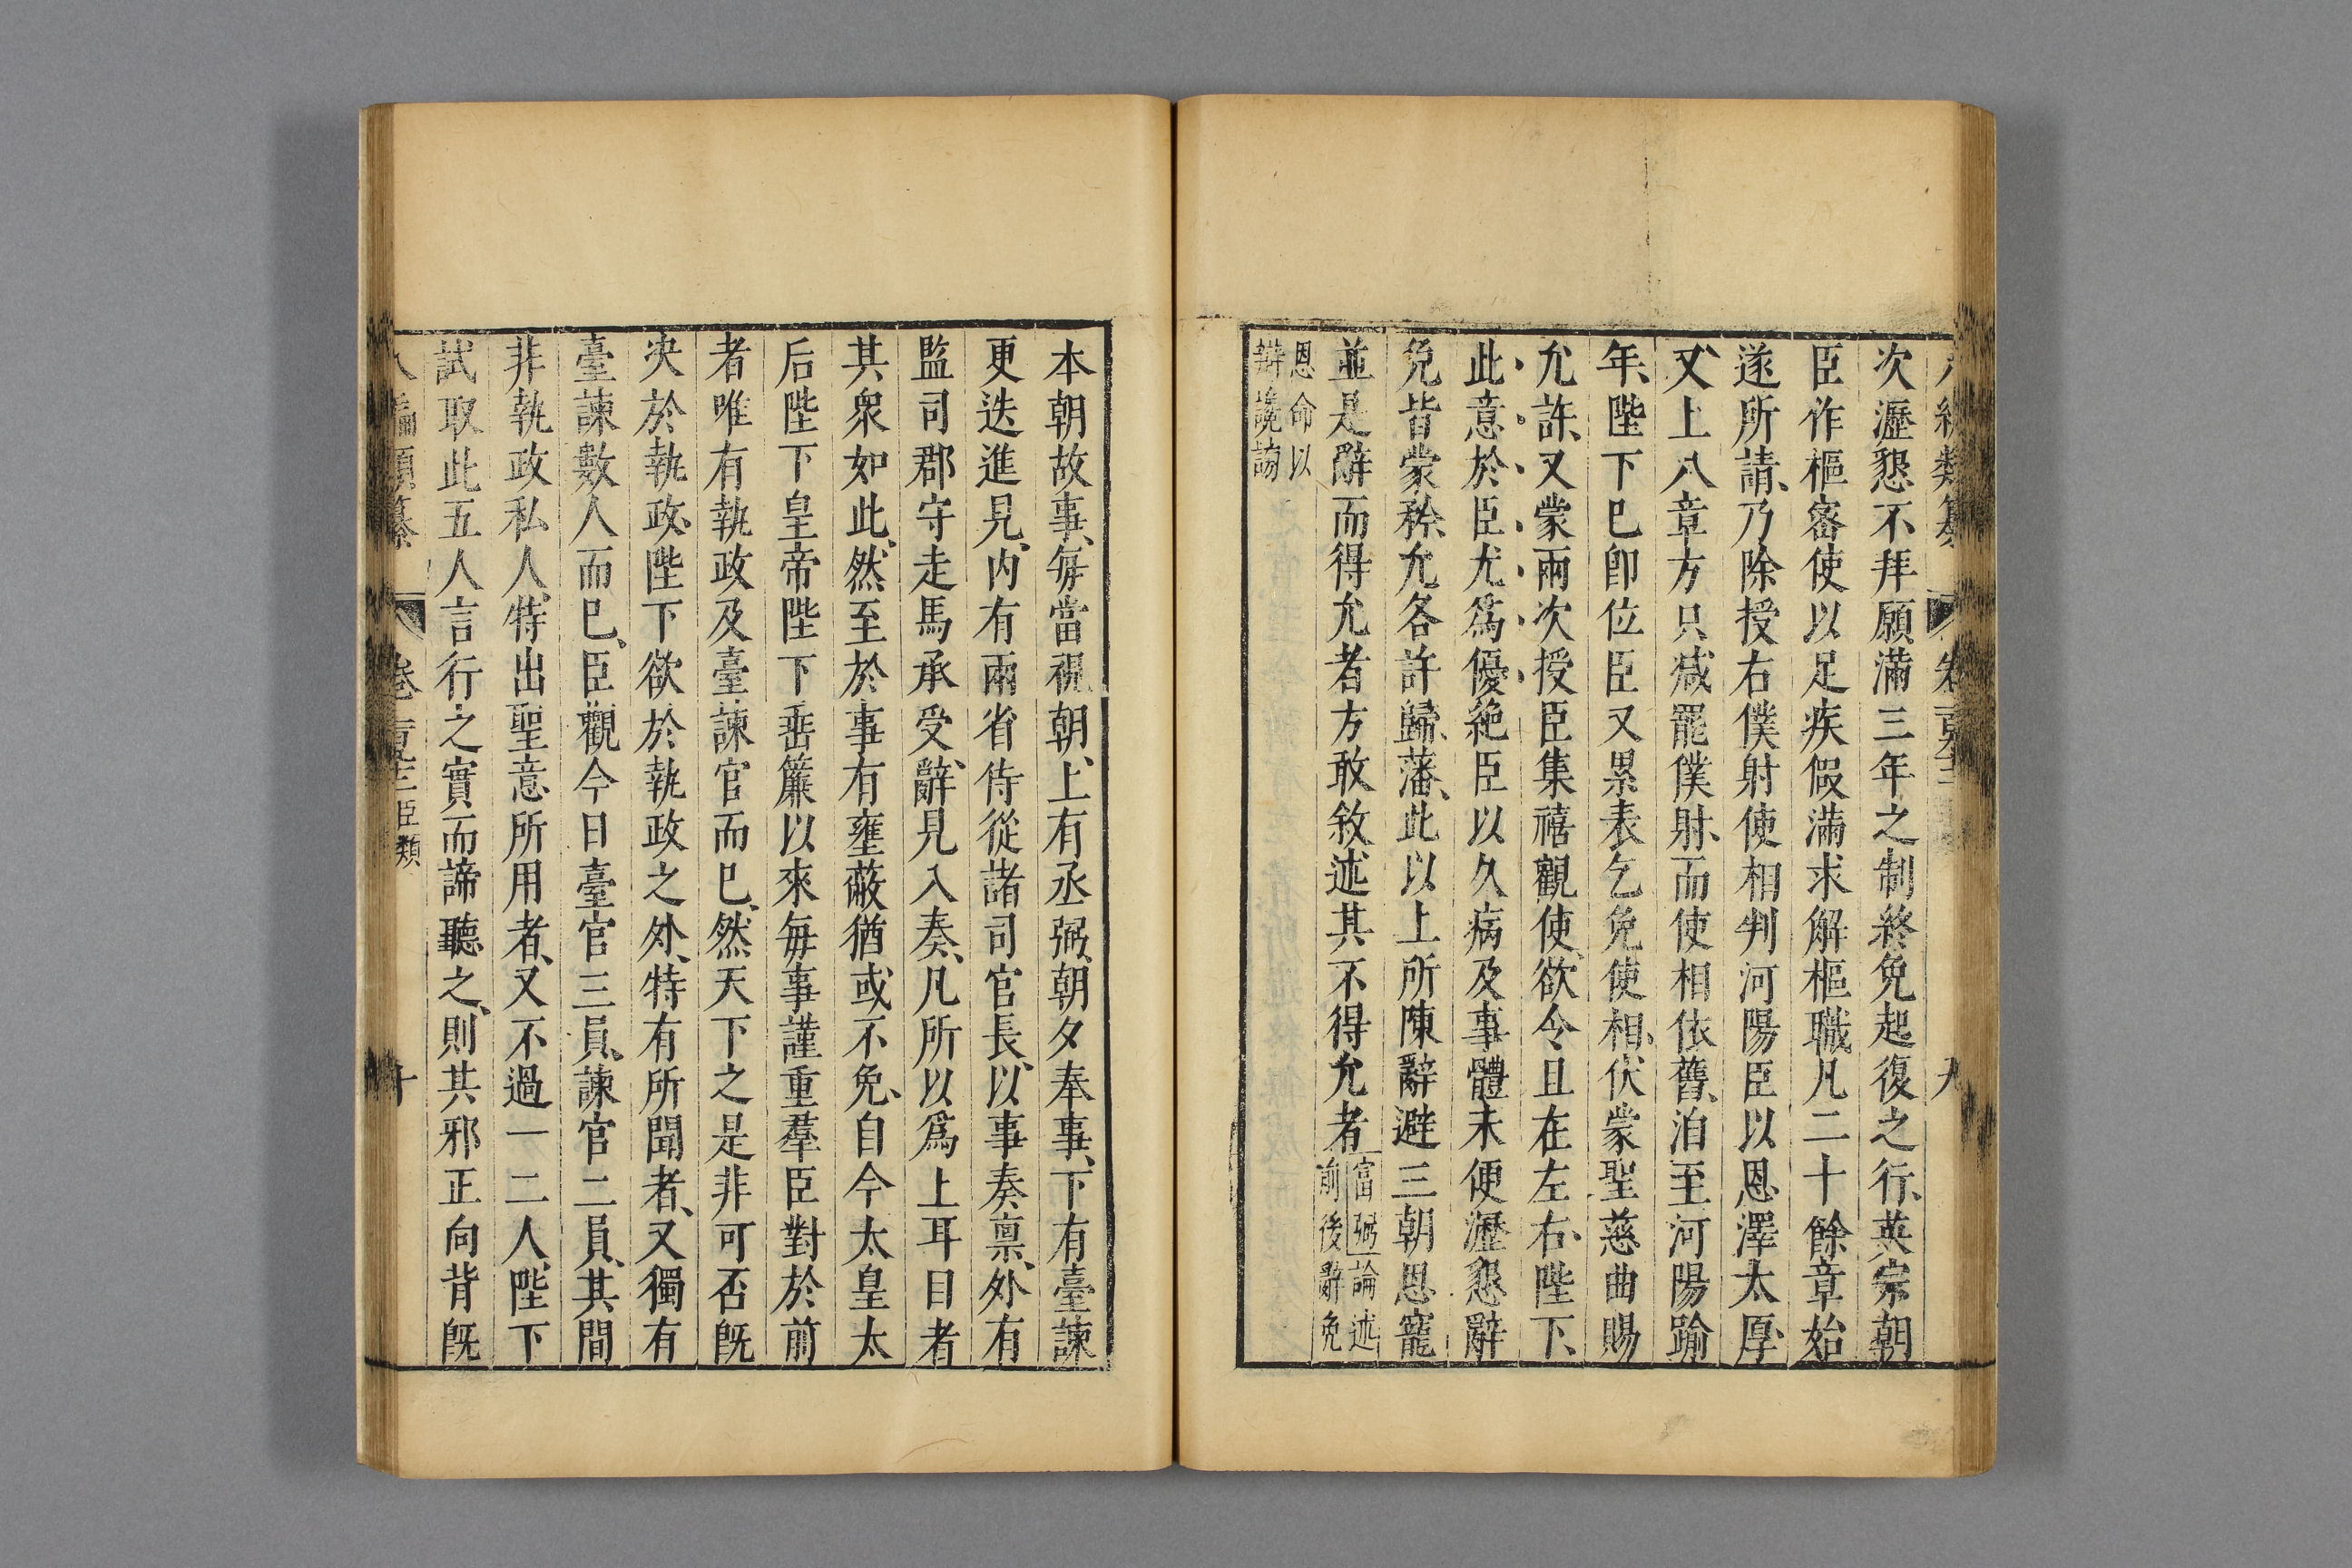 次瀝懇不拜願滿三年之制終免起復之行、英宗朝
臣作樞密使以足疾假滿求解樞職、凡二十餘章始
遂所請、乃除授右僕射使相判河陽臣以恩澤太厚、
又上八章方只減罷僕射、而使相依舊、洎至河陽踰
年、陛下巳卽位臣又累表乞免使相、伏蒙聖慈曲賜
允許、又蒙兩次授臣集禧觀使、欲令且在左右、陛下、
此意於臣尤爲優絶臣以久病及事體未便瀝懇辭
免皆蒙矜允各許歸藩、此以上所陳辭避三朝恩寵
並是辭而得允者方敢敘述其不得允者富弼論述
前後辭免
恩命以
辯讒謗
本朝故事、每當視朝、上有丞弼、朝夕奉事、下有臺諫
更迭進見、内有兩省侍從諸司官長、以事奏禀、外有
監司郡守走馬承受、辭見入奏、凡所以爲上耳目者
其衆如此、然至於事有壅蔽猶或不免、自今太皇太
后陛下皇帝陛下垂簾以來每事謹重羣臣對於前
者唯有執政及臺諫官而巳、然天下之是非可否旣
決於執政、陛下欲於執政之外、特有所聞者、又獨有
臺諫數人而巳、臣觀今日臺官三員、諫官二員、其間
非執政私人、特出聖意所用者、又不過一二人、陛下
試取此五人言行之實而諦聽之、則其邪正向背旣
編類纂 卷一百九十三 臣類 十